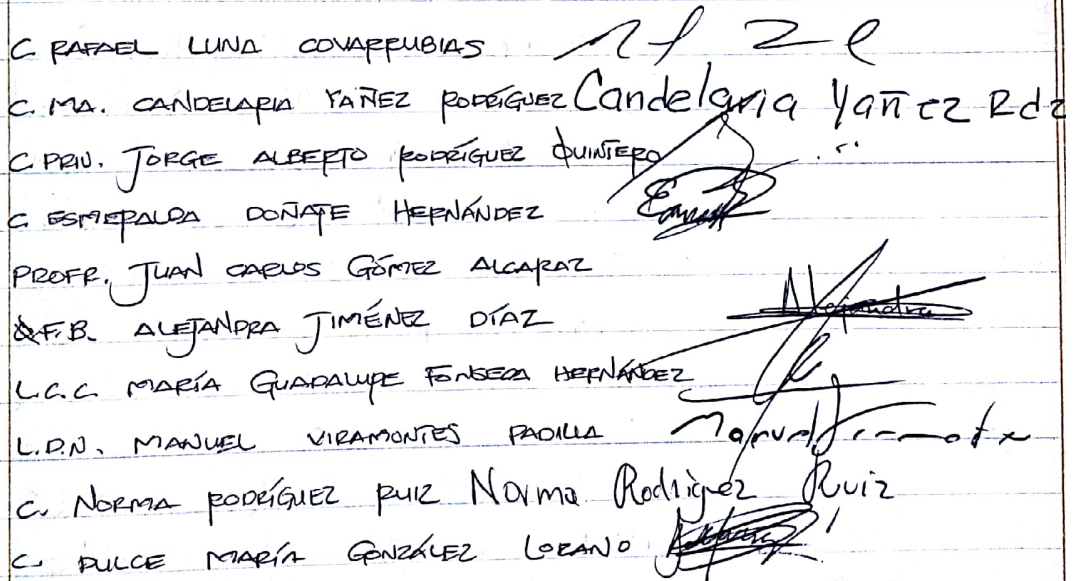 C RAFAEL LUNA COVARRUBIAS
C. MA. CANDELARIA YAÑEZ RODRÍGUEZ Candelaria Yañez Rdz
C PRIV. JORGE ALBERTO RODRÍGUEZ QUINTERO
C ESMERALDA DOÑATE HERNÁNDEZ
PROFR. JUAN CARLOS GÓMEZ ALCARAZ
Q.F.B. ALEJANDRA JIMÉNEZ DÍAZ Alejandra
L.C.C MARÍA GUADALUPE FONSECA HERNÁNDEZ
L.D.N. MANUEL VIRAMONTES PADILLA Manuel
C. NORMA RODRÍGUEZ RUIZ Norma Rodriguez Ruiz
C. DULCE MARÍA GONZÁLEZ LOZANO